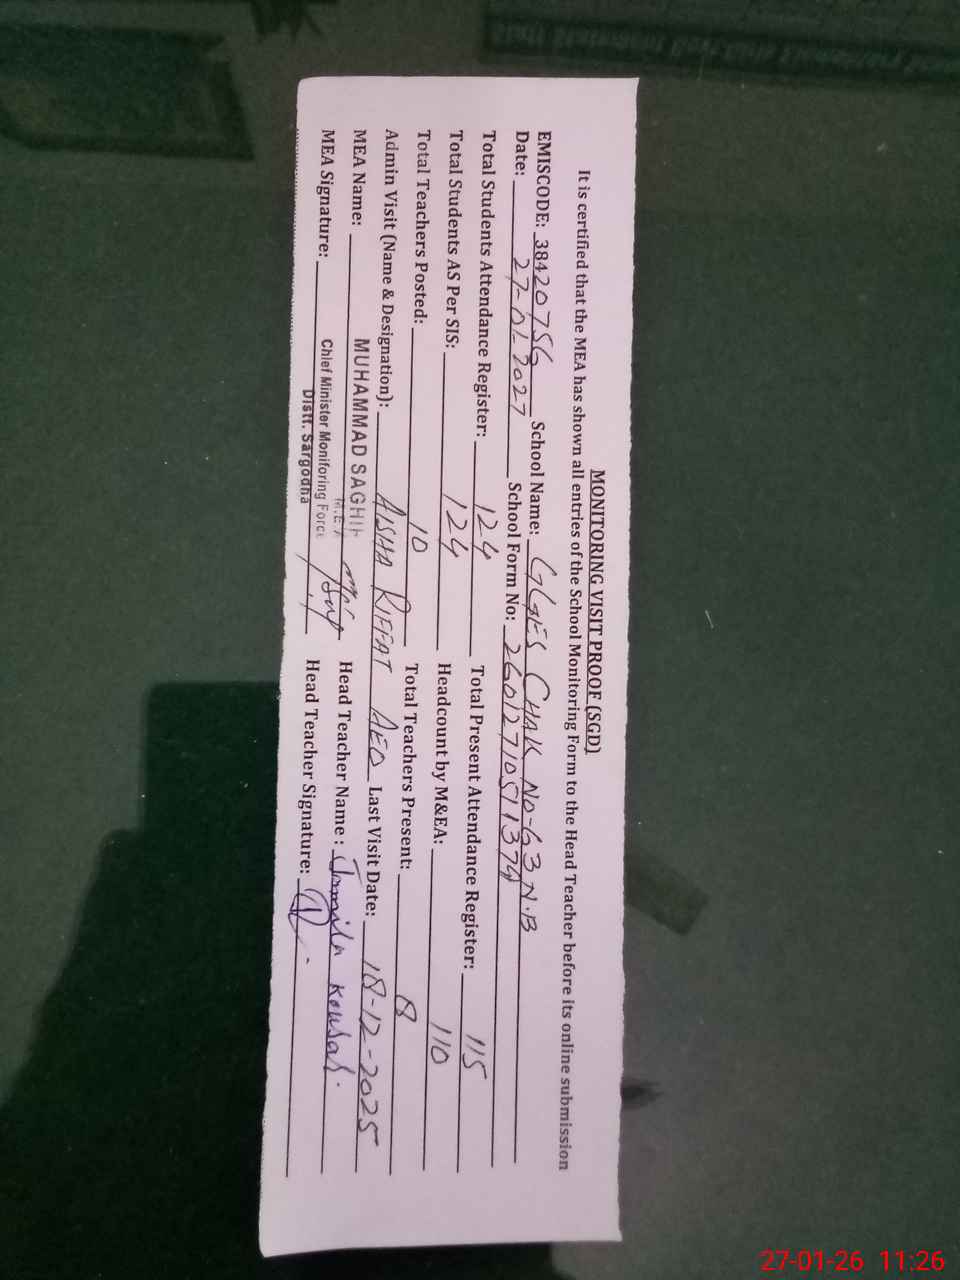 MONITORING VISIT PROOF (SGD)
It is certified that the MEA has shown all entries of the School Monitoring Form to the Head Teacher before its online submission
EMISCODE: 38420756 School Name: GGES CHAK NO-63 N.B
Date: 27-01-2027 School Form No: 26012710511374
Total Students Attendance Register: 124 Total Present Attendance Register: 115
Total Students AS Per SIS: 124 Headcount by M&EA: 110
Total Teachers Posted: 10 Total Teachers Present: 8
Admin Visit (Name & Designation): AISHA RIFFAT AEO Last Visit Date: 18-12-2025
MEA Name: MUHAMMAD SAGHIR Head Teacher Name : Jamila Kousar.
M.E.A
MEA Signature: Chief Minister Monitoring Force Head Teacher Signature:
Distt. Sargodha
27-01-26 11:26